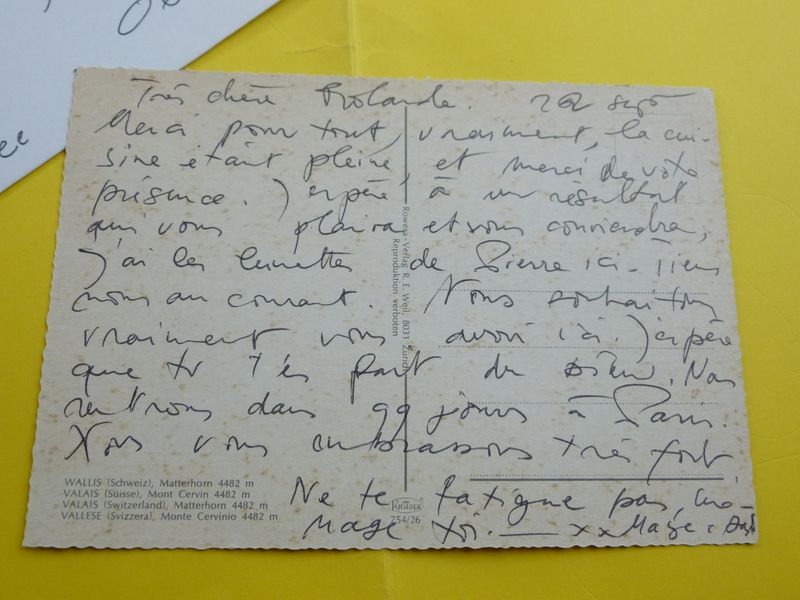 Très chère Rolande. 22 sept
Merci pour tout, vraiment, la cui-
sine étant pleine, et merci de votre
présence. J'espère, à un résultat
qui vous plaira et vous conviendra,
J'ai les lunettes de Pierre ici. Tiens
nous au courant. Nous souhaitons
vraiment vous avoir ici. J'espère
que tu t'es part du bien. Nous
rentrons dans qq jours à Paris.
Nous vous embrassons très fort
Ne te fatigue pas, mé-
nage toi. — xx
WALLIS (Schweiz), Matterhorn 4482 m
VALAIS (Suisse), Mont Cervin 4482 m
VALAIS (Switzerland), Matterhorn 4482 m
VALLESE (Svizzera), Monte Cervinio 4482 m
KRÜGER
754/26
Verlag R. E. Weil, 8031 Zürich
Reproduktion verboten